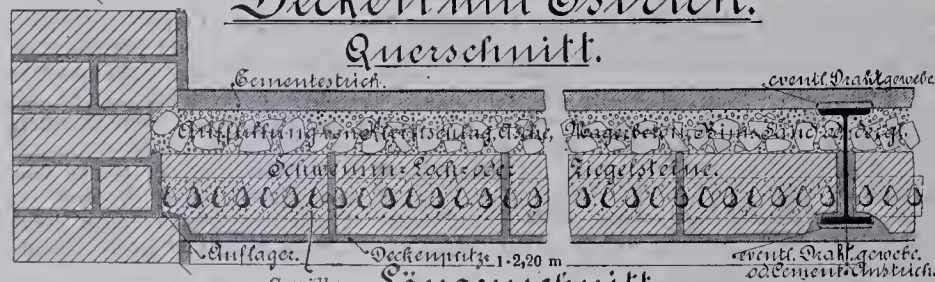 Decken mit Estrich.
Querschnitt.
Cementestrich.
eventl. Drahtgewebe
Auffüllung von Kleinschlag, Asche, Magerbeton, Bims-Sand od. dergl.
Schwemm-Loch-oder Ziegelsteine.
Auflager.
Deckenputz
1-2,20 m
eventl. Draht.gewebe.
od. Cement-Anstrich.
Längenschnitt